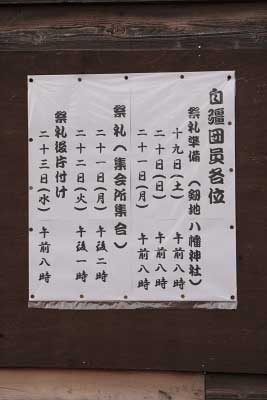 自彊団員各位
祭礼準備 (剱地八幡神社)
十九日(土) 午前八時
二十日(日) 午前八時
二十一日(月) 午前八時
祭礼(集会所集合)
二十一日(月) 午後二時
二十二日(火) 午後一時
祭礼後片付け
二十三日(水) 午前八時